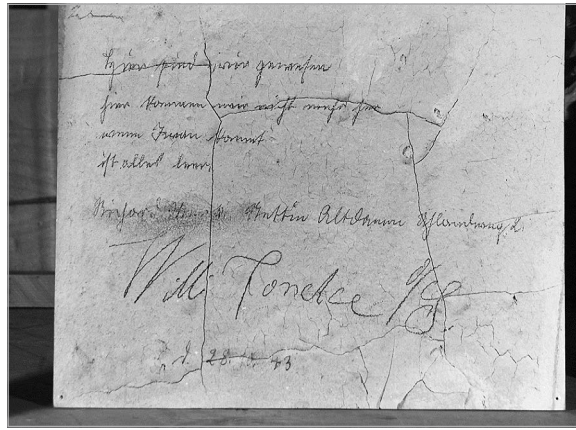 Hier sind wir gewesen
hier kommen wir nicht mehr her
wenn Iwan kommt
ist alles leer.
Richard Stettin Altdamm
Willi
d. 28. 43